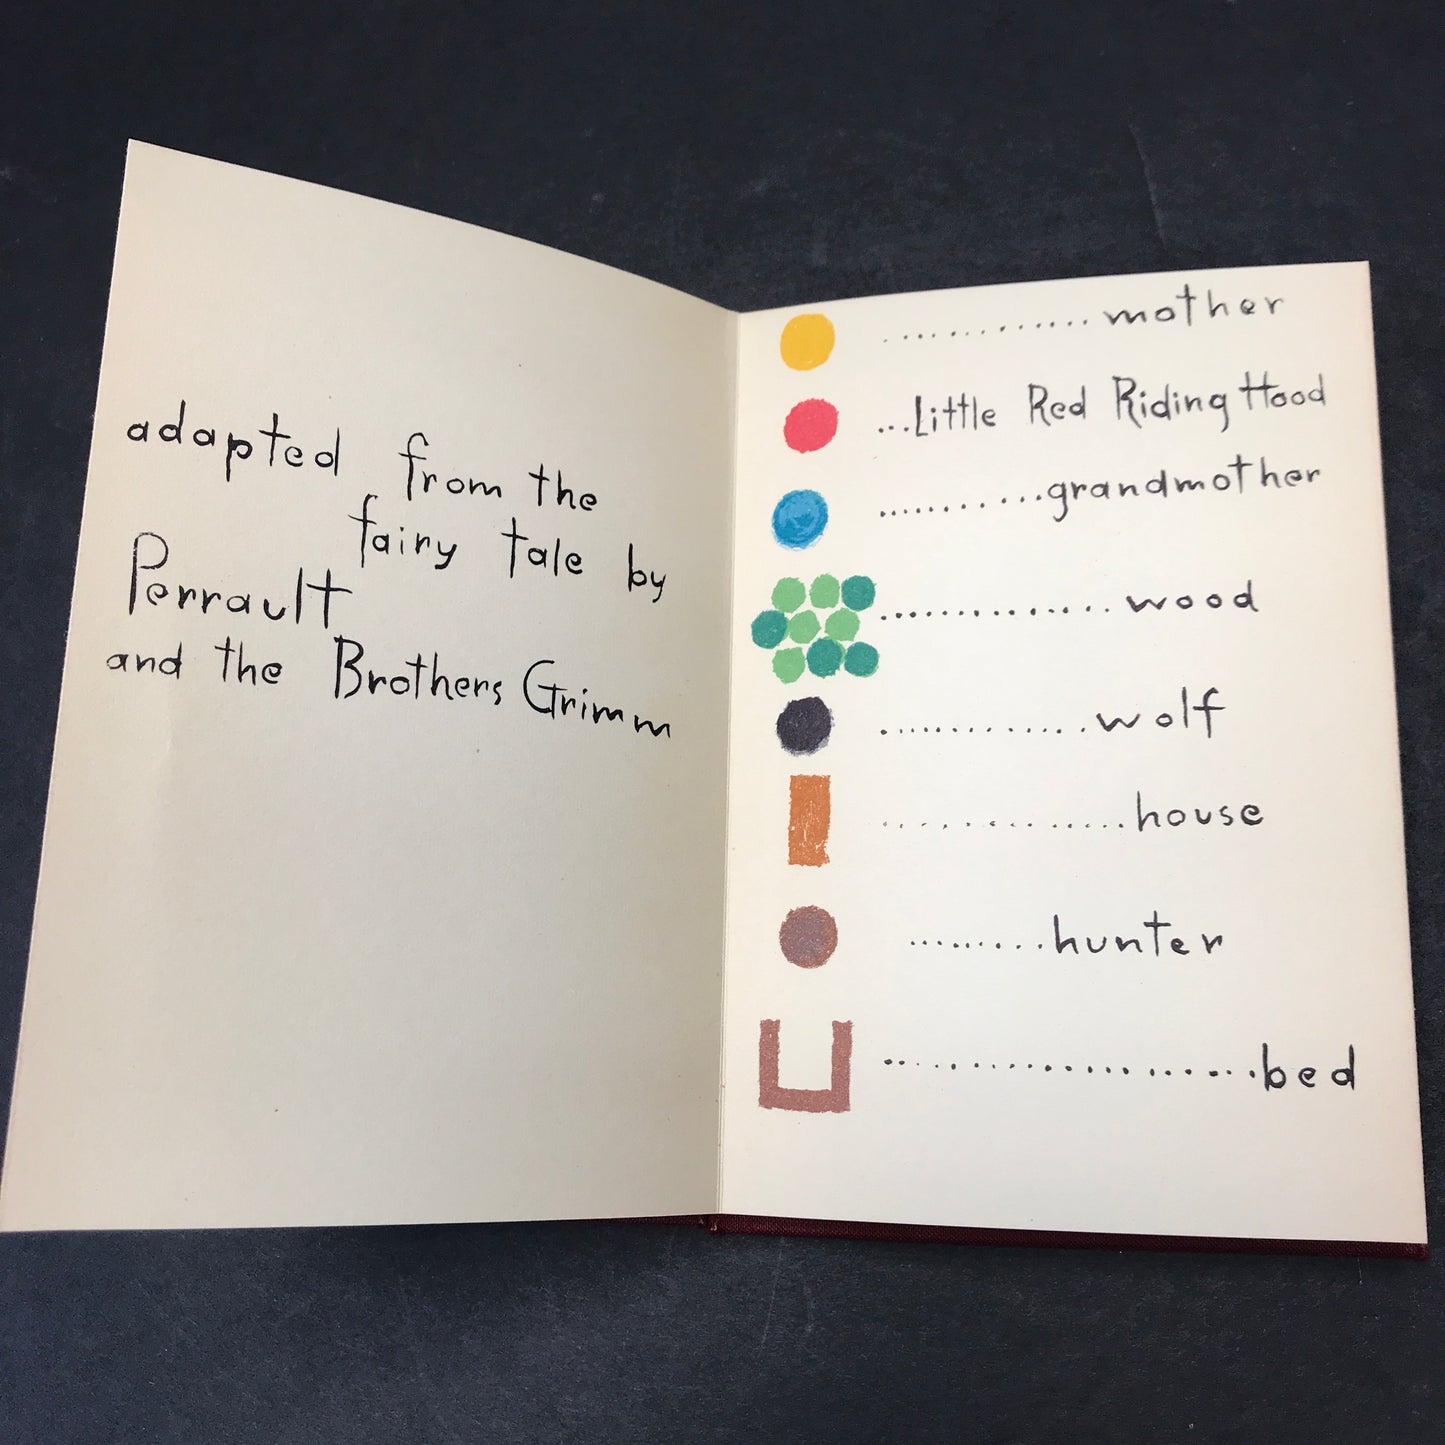 adapted from the
fairy tale by
Perrault
and the Brothers Grimm
............mother
...Little Red Riding Hood
............grandmother
..............wood
..............wolf
..............house
.........hunter
....................bed